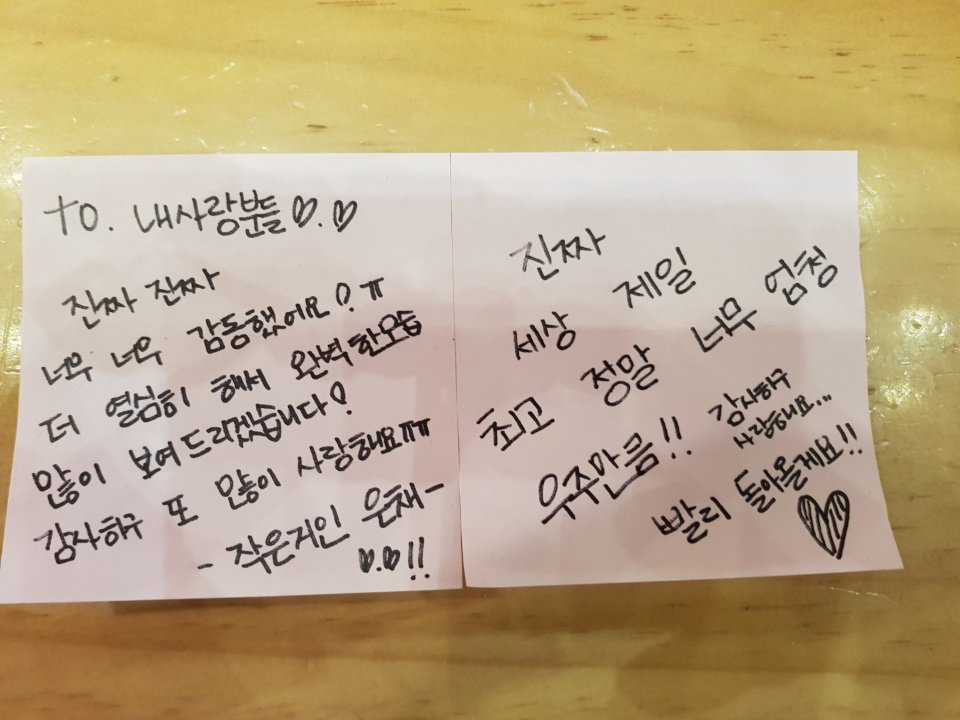 TO. 내사랑분들♡.♡
진짜 진짜
너무 너무 감동했어요!ㅠ
더 열심히 해서 완벽한모습
많이 보여드리겠습니다!
감사하구 또 많이 사랑해요ㅠㅠ
- 작은거인 은채-
♡.♡!!
진짜
세상 제일
최고 정말 너무 엄청
우주만큼!! 감사하구
사랑해요...
빨리 돌아올게요!!
♡